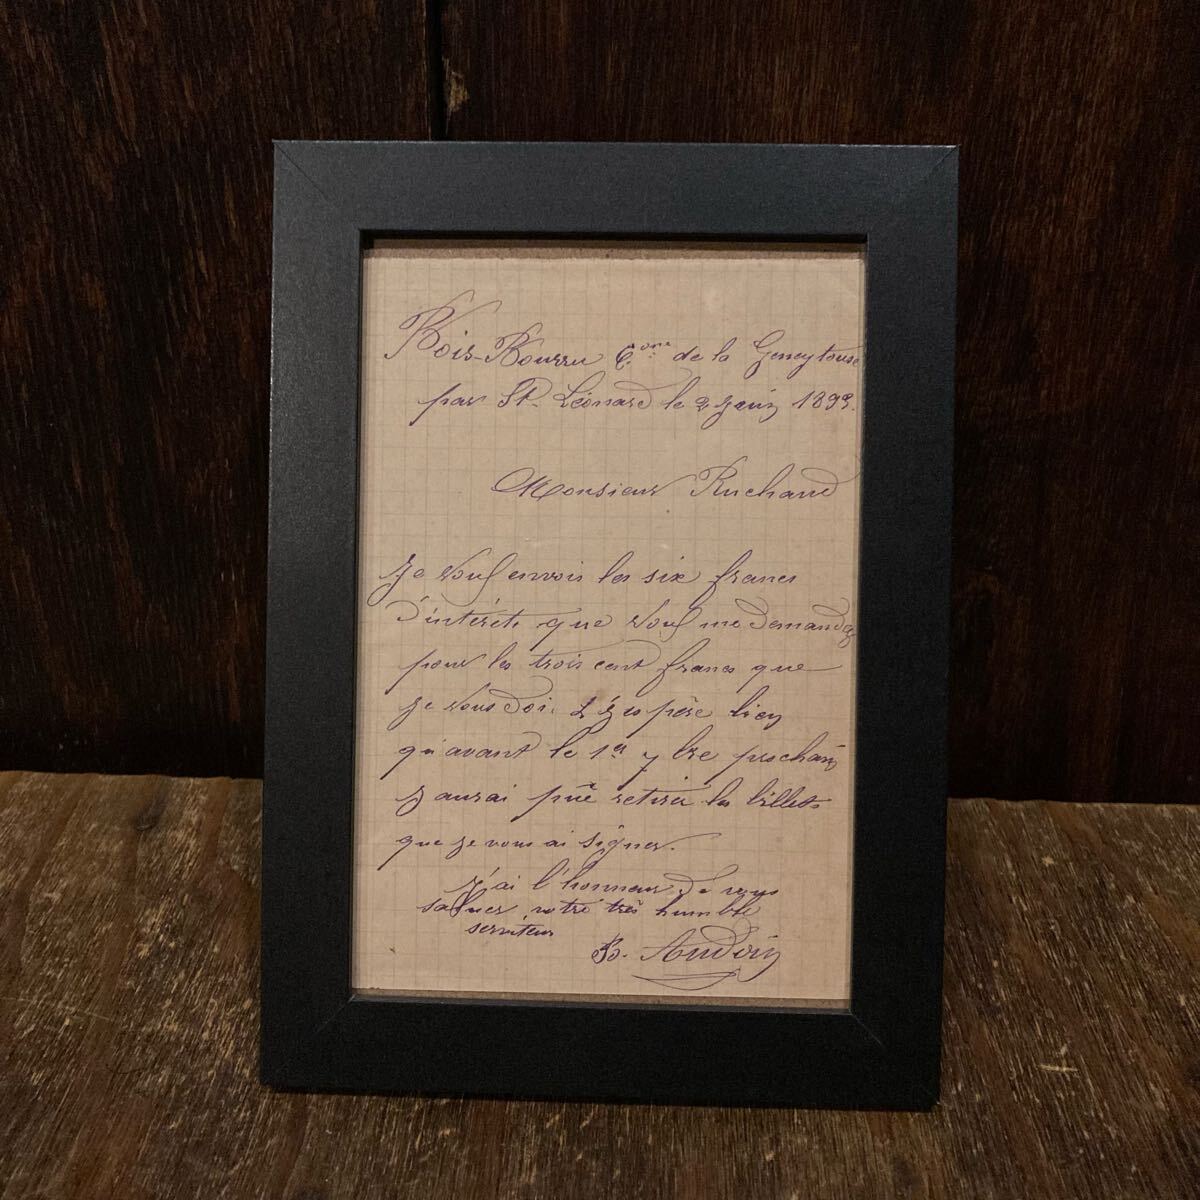 Bois-Bourru C.one de la Geneytouse
par St. Léonard le 2 Juin 1893.
Monsieur Ruchaud
Je vous envois les six francs
d'intérêts que vous me demandez
pour les trois cent francs que
je vous doi. J'éspère bien
qu'avant le 1er 7bre prochain
j'aurai pûe retirer les billets
que je vous ai signer.
J'ai l'honneur de vous
saluer votre très humble
serviteur
B. Audoin